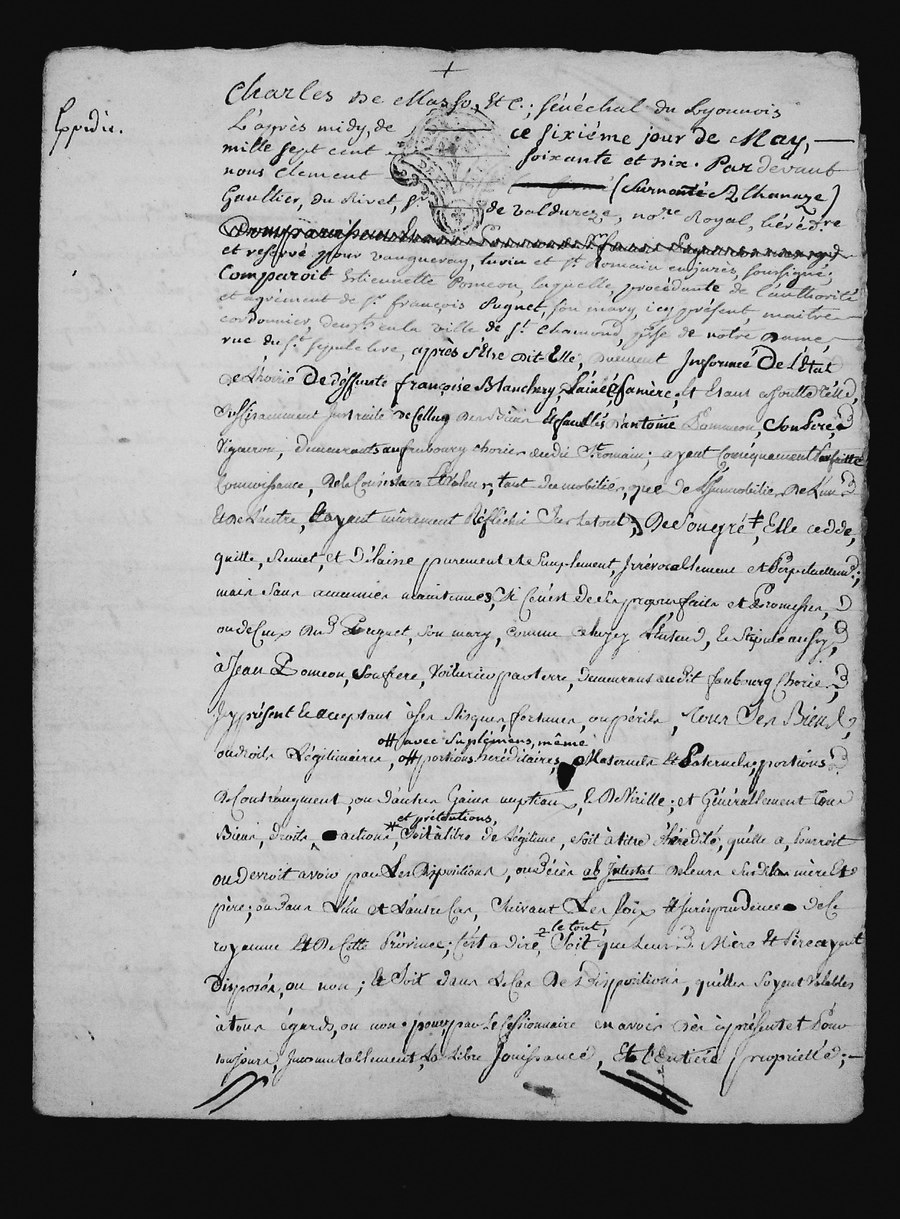 Expédié.
Charles De Masso, Etc.; sénéchal du Lyonnois
L'après midy, de ce sixième jour de May,
mille sept cent soixante et dix. Par devant
nous Clement (surnomé
Gaultier, du Rivet, de Valdureze, no.re Royal, héréd.re
et reservé pour vaugneray, Iurin et St. Romain en jarés, soussigné;
Comparoit Etiennette Pomeon, laquelle, procédante de l'authorité
et agrément de sr. françois Puguet, son mary, icy présent, maitre
cordonnier, deust en la ville de St. Chamond, psse de notre Dame,
rue du St. sepulchre, après s'Etre dit Elle, Informée De l'Etat
De Defunte françoise Blanchery, sa mère, et Etant
suffisamment instruite De Celluy Des Biens Et facultés d'antoine Pommeon, Son Pere,
Vigneron, demeurant au faubourg chorier dudit St. Romain; ayant Conséquamment parfaitte
Connoissance, De la Consistance Et Valeur, tant du mobilier, que de L'Immobilier De L'un
Et De L'autre, Et ayant mûrement Réflechi Sur le tout; De Son gré, Elle cedde,
quitte, Remet, et Délaisse purement et Simplement, Irrévocablement et Perpétuellement;
mais sans aucunes maintenues, Si Ce n'est de Ses propres faits et Promesses,
ou de Ceux Dud. Puguet, Son mary, comme
à Jean Pomeon, Son frere, Voiturier par terre, Demeurant au Dit faubourg Chorier,
Icy présent Et acceptant à Ses Risques, fortunes, ou périls, Tous Ses Biens
ou droits Légitimaires, ou portions héréditaires, Maternels Et Paternels, portions
avec suplémens, même
D'augment, ou d'autres Gains nuptiaux, Et De Virille; et Généralement tous
Biens, droits, actions, Soit à titre de Légitime, soit à titre d'hérédité, qu'elle a, Pourroit
et prétentions,
ou devroit avoir par Les Dispositions, ou Décès ab Intestat De Leurs Susdits mère Et
père; ou dans L'un et L'autre Cas, Suivant Les Loix Jurisprudence de Ce
royaume Et De Cette Province; C'est a dire, Soit que Leurs d. Mère Et Père ayent
le tout,
Disposés, ou non; Et Soit dans Le Cas De Dispositions, qu'elles Soyent Valables
à tous égards, ou non pour, par Le Cessionnaire en avoir Dès à présent et Pour
toujours, Incommutablement, La Libre Jouissance, Et L'Entière Propriété;